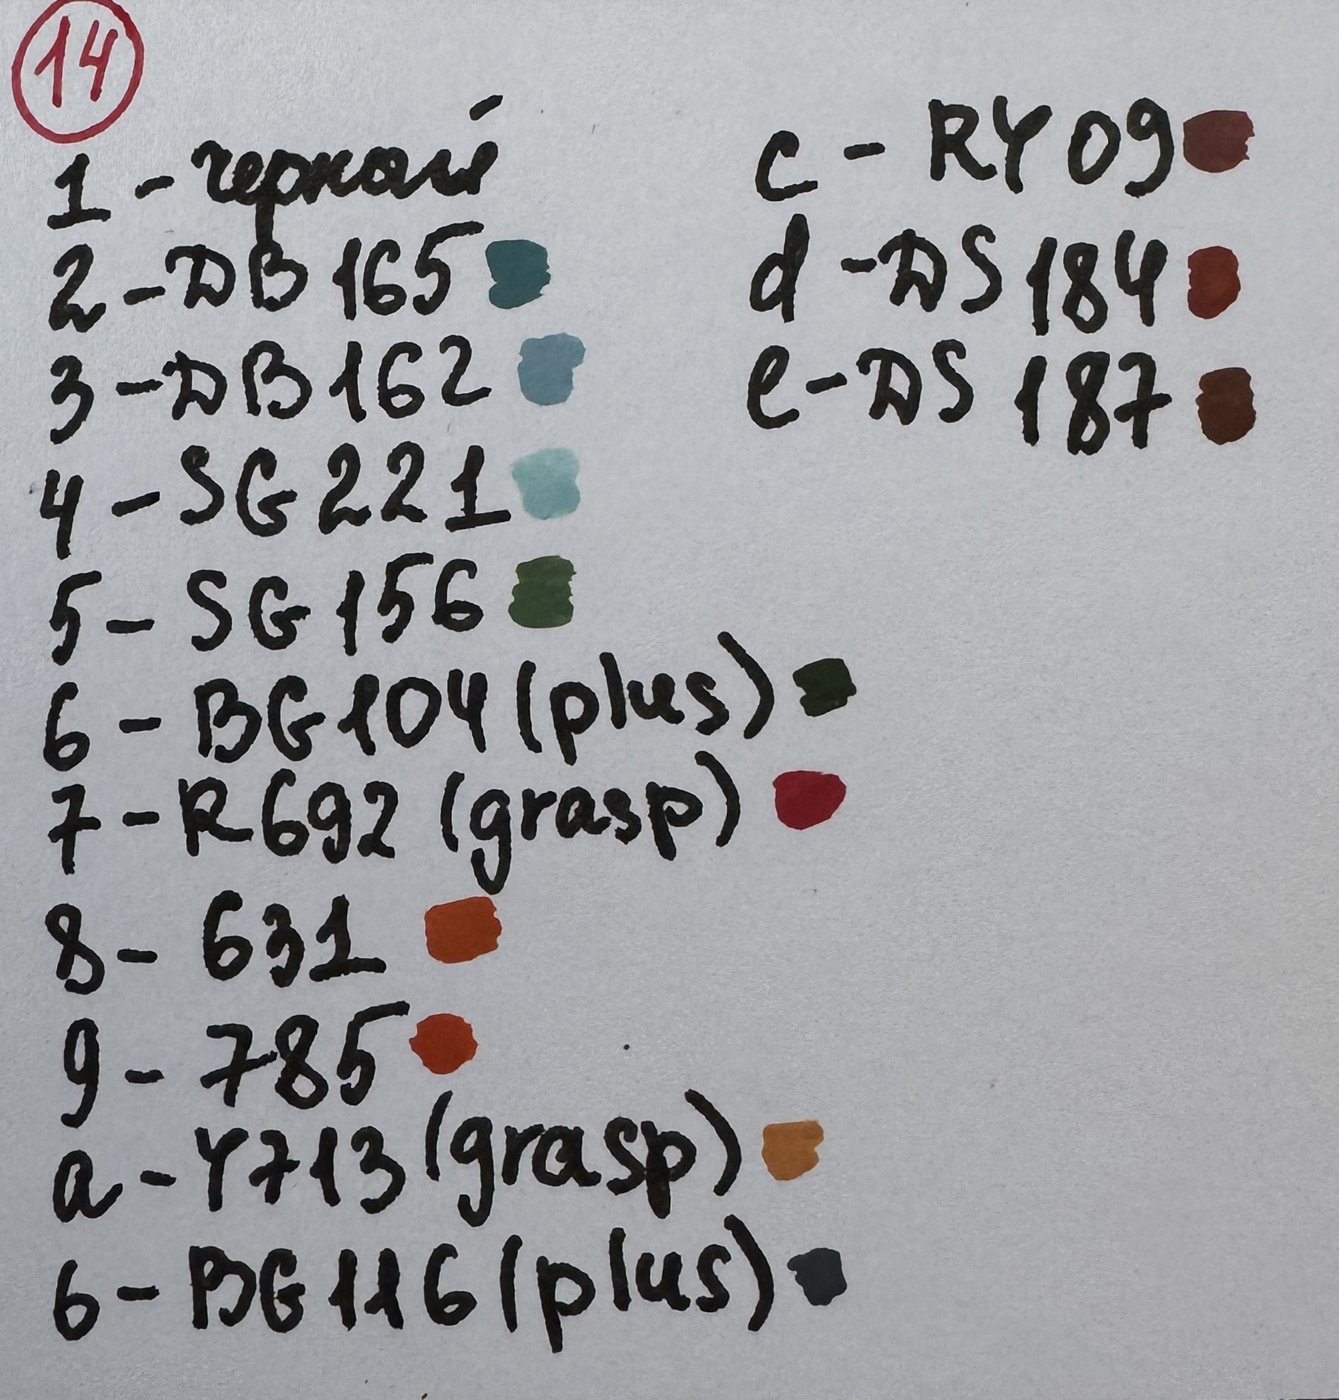 14
1 - черный
2 - DB 165
3 - DB 162
4 - SG 221
5 - SG 156
6 - BG 104 (plus)
7 - R692 (grasp)
8 - 631
9 - 785
a - Y713 (grasp)
b - BG 116 (plus)
c - RY 09
d - DS 184
e - DS 187